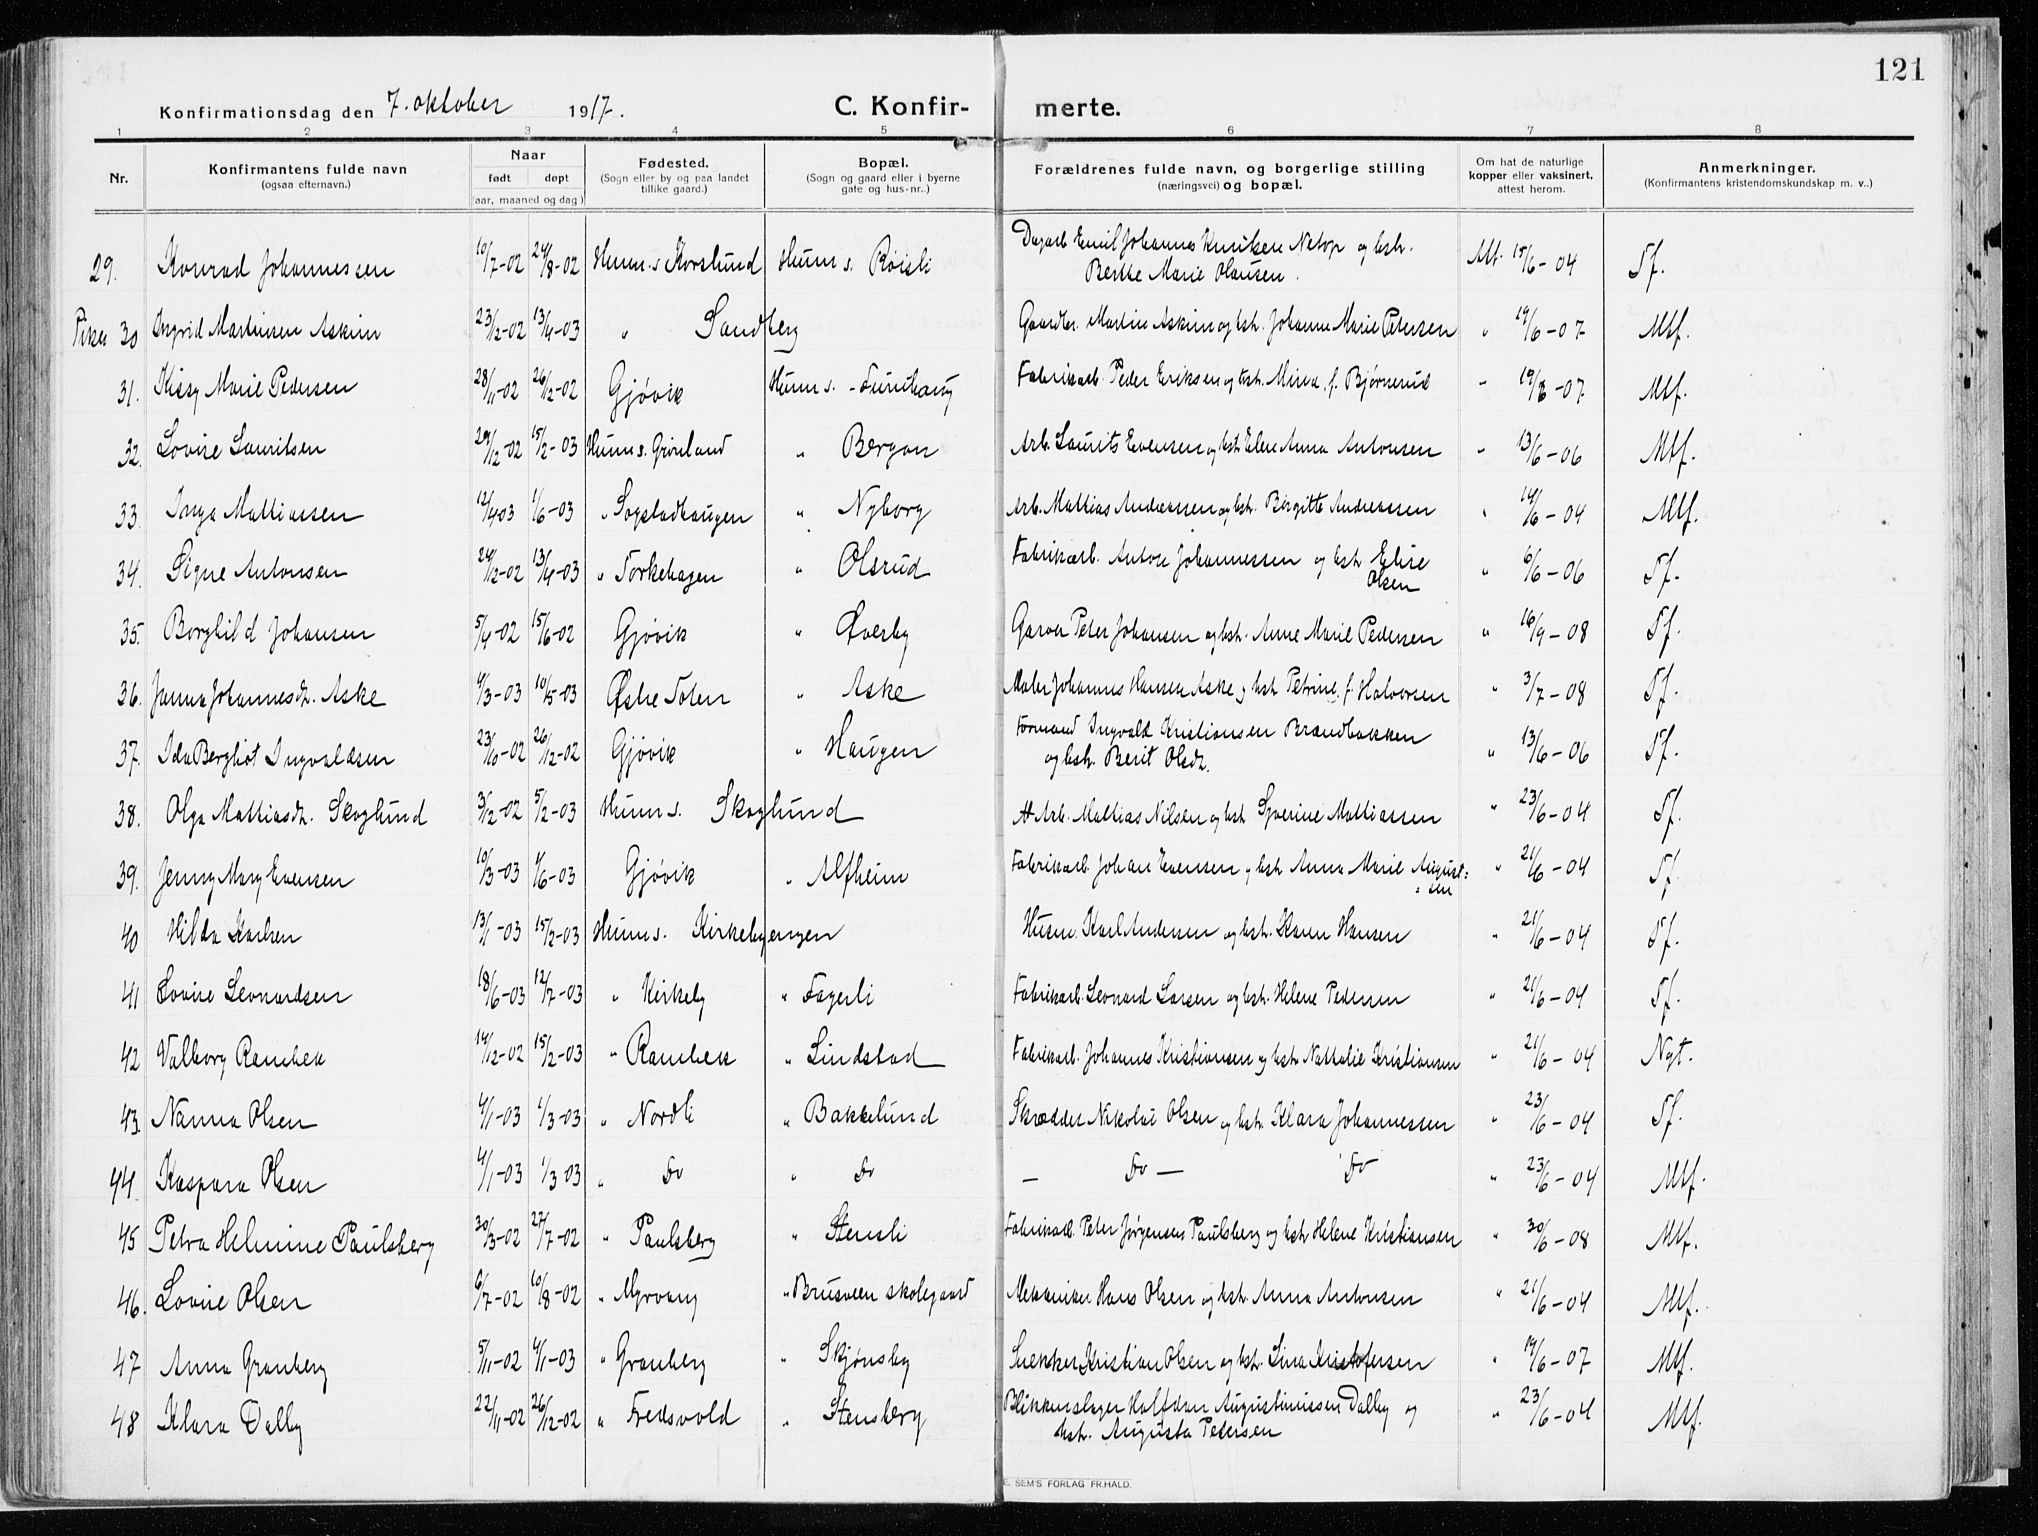 121
Konfirmationsdag den 7. oktober 1917. C. Konfir- merte.
1 2 3 4 5 6 7 8
Nr. Konfirmantens fulde navn (ogsaa efternavn.) Naar født døpt (aar, maaned og dag) Fødested. (Sogn eller by og paa landet tillike gaard.) Bopæl. (Sogn og gaard eller i byerne gate og hus-nr..) Forældrenes fulde navn, og borgerlige stilling (næringsvei) og bopæl. Om hat de naturlige kopper eller vaksinert, attest herom. Anmerkninger. (Konfirmantens kristendomskundskap m. v..)
29. Konrad Johannessen 10/7-02 24/8-02 Hunn s. Korslund Hunn s. Røisli Dagarb. Emil Johannes Knutsen Netop og hstr. Berthe Marie Hansen. Att. 15/6-04 Sf.
Piker 30 Ingrid Martinsen Askim 23/12-02 13/4-03 " Sandberg Gaardbr. Martin Askim og hstr. Johanne Marie Petersen " 19/6-07 Mtf.
31. Kissy Marie Pedersen 28/11-02 26/12-02 Gjøvik Hunn s. - Furuhaug Fabrikarb. Peder Eriksen og hstr. Mina, f. Bjørnerud " 19/6-07 Mtf.
32. Lovise Lauritsen 29/12-02 15/2-03 Hunn s. Grønland " Bergan Arb. Laurits Evensen og hstr. Elen Anna Antonsen " 13/6-06 Mtf.
33. Inga Mattiassen 12/4-03 1/6-03 " Sogstadhaugen " Nyborg Arb. Mattias Andreassen og hstr. Birgitte Andreassen " 14/6-04 Mtf.
34. Signe Antonsen 24/12-02 13/4-03 " Torkehagen " Olsrud Fabrikarb. Anton Johannessen og hstr Elise Olsen " 6/6-06 Sf.
35. Borghild Johansen 5/4-02 15/6-02 Gjøvik " Øverby Garver Peter Johansen og hstr. Anne Marie Pedersen " 16/9-08 Sf.
36. Janna Johannesdt. Aske 4/3-03 10/5-03 Østre Toten " Aske Maler Johannes Hansen Aske og hstr Petrine, f. Halvorsen " 3/7-08 Sf.
37. Ida Bergliot Ingvaldsen 23/10-02 26/12-02 Gjøvik " Haugen Formand Ingvald Kristiansen Brandbakken og hstr. Berit Olsdt. " 13/6-06 Sf.
38. Olga Mattiasdt. Skoglund 3/12-02 5/2-03 Hunn s. Skoglund Arb. Mattias Nilsen og hstr Syverine Mattiassen " 23/6-04 Sf.
39. Jenny Mary Evensen 10/3-03 4/6-03 Gjøvik " Alfheim Fabrikarb. Johan Evensen og hstr Anna Marie August-sen " 21/6-04 Sf.
40 Hilda Karlsen 13/1-03 15/2-03 Hunn s. Kirkebyengen Husm. Karl Andersen og hstr. Karen Hansen " 21/6-04 Sf.
41 Lovise Leonardsen 18/6-03 12/7-03 " Kirkeby " Fagerli Fabrikarb. Leonard Larsen og hstr. Helene Pedersen " 21/6-04 Sf.
42 Valborg Rambek 14/12-02 15/2-03 " Rambek " Lindstad Fabrikarb. Johannes Kristiansen og hstr Nathalie Kristiansen " 21/6-04 Ngt.
43. Nanna Olsen 4/1-03 1/3-03 " Nordli " Bakkelund Skrædder Nikolai Olsen og hstr. Klara Johannessen " 23/6-04 Sf.
44. Kaspara Olsen 4/1-03 1/3 03 " Do " Do — Do — Do " 23/6-04 Mtf.
45 Petra Helmine Paulsberg 30/3-02 27/7-02 " Paulsberg " Stensli Fabrikarb. Peter Jørgensen Paulsberg og hstr Helene Kristiansen " 30/6-08 Mtf.
46. Lovise Olsen 6/7-02 10/8-02 " Myrvang " Brusveen skolegaard Mekaniker Hans Olsen og hstr. Anna Antonsen " 21/6-04 Mtf.
47 Anna Granberg 5/11-02 4/1-03 " Granberg " Skjønsby Snekker Kristian Olsen og hstr. Lina Kristofersen " 19/6-07 Mtf.
48 Klara Dalby 22/11-02 26/12-02 " Fredsvold " Stensberg Blikkenslager Halfdan Augustinussen Dalby og hstr. Augusta Petersen " 23/6-04 Mtf.
E. SEM'S FORLAG FR.HALD.